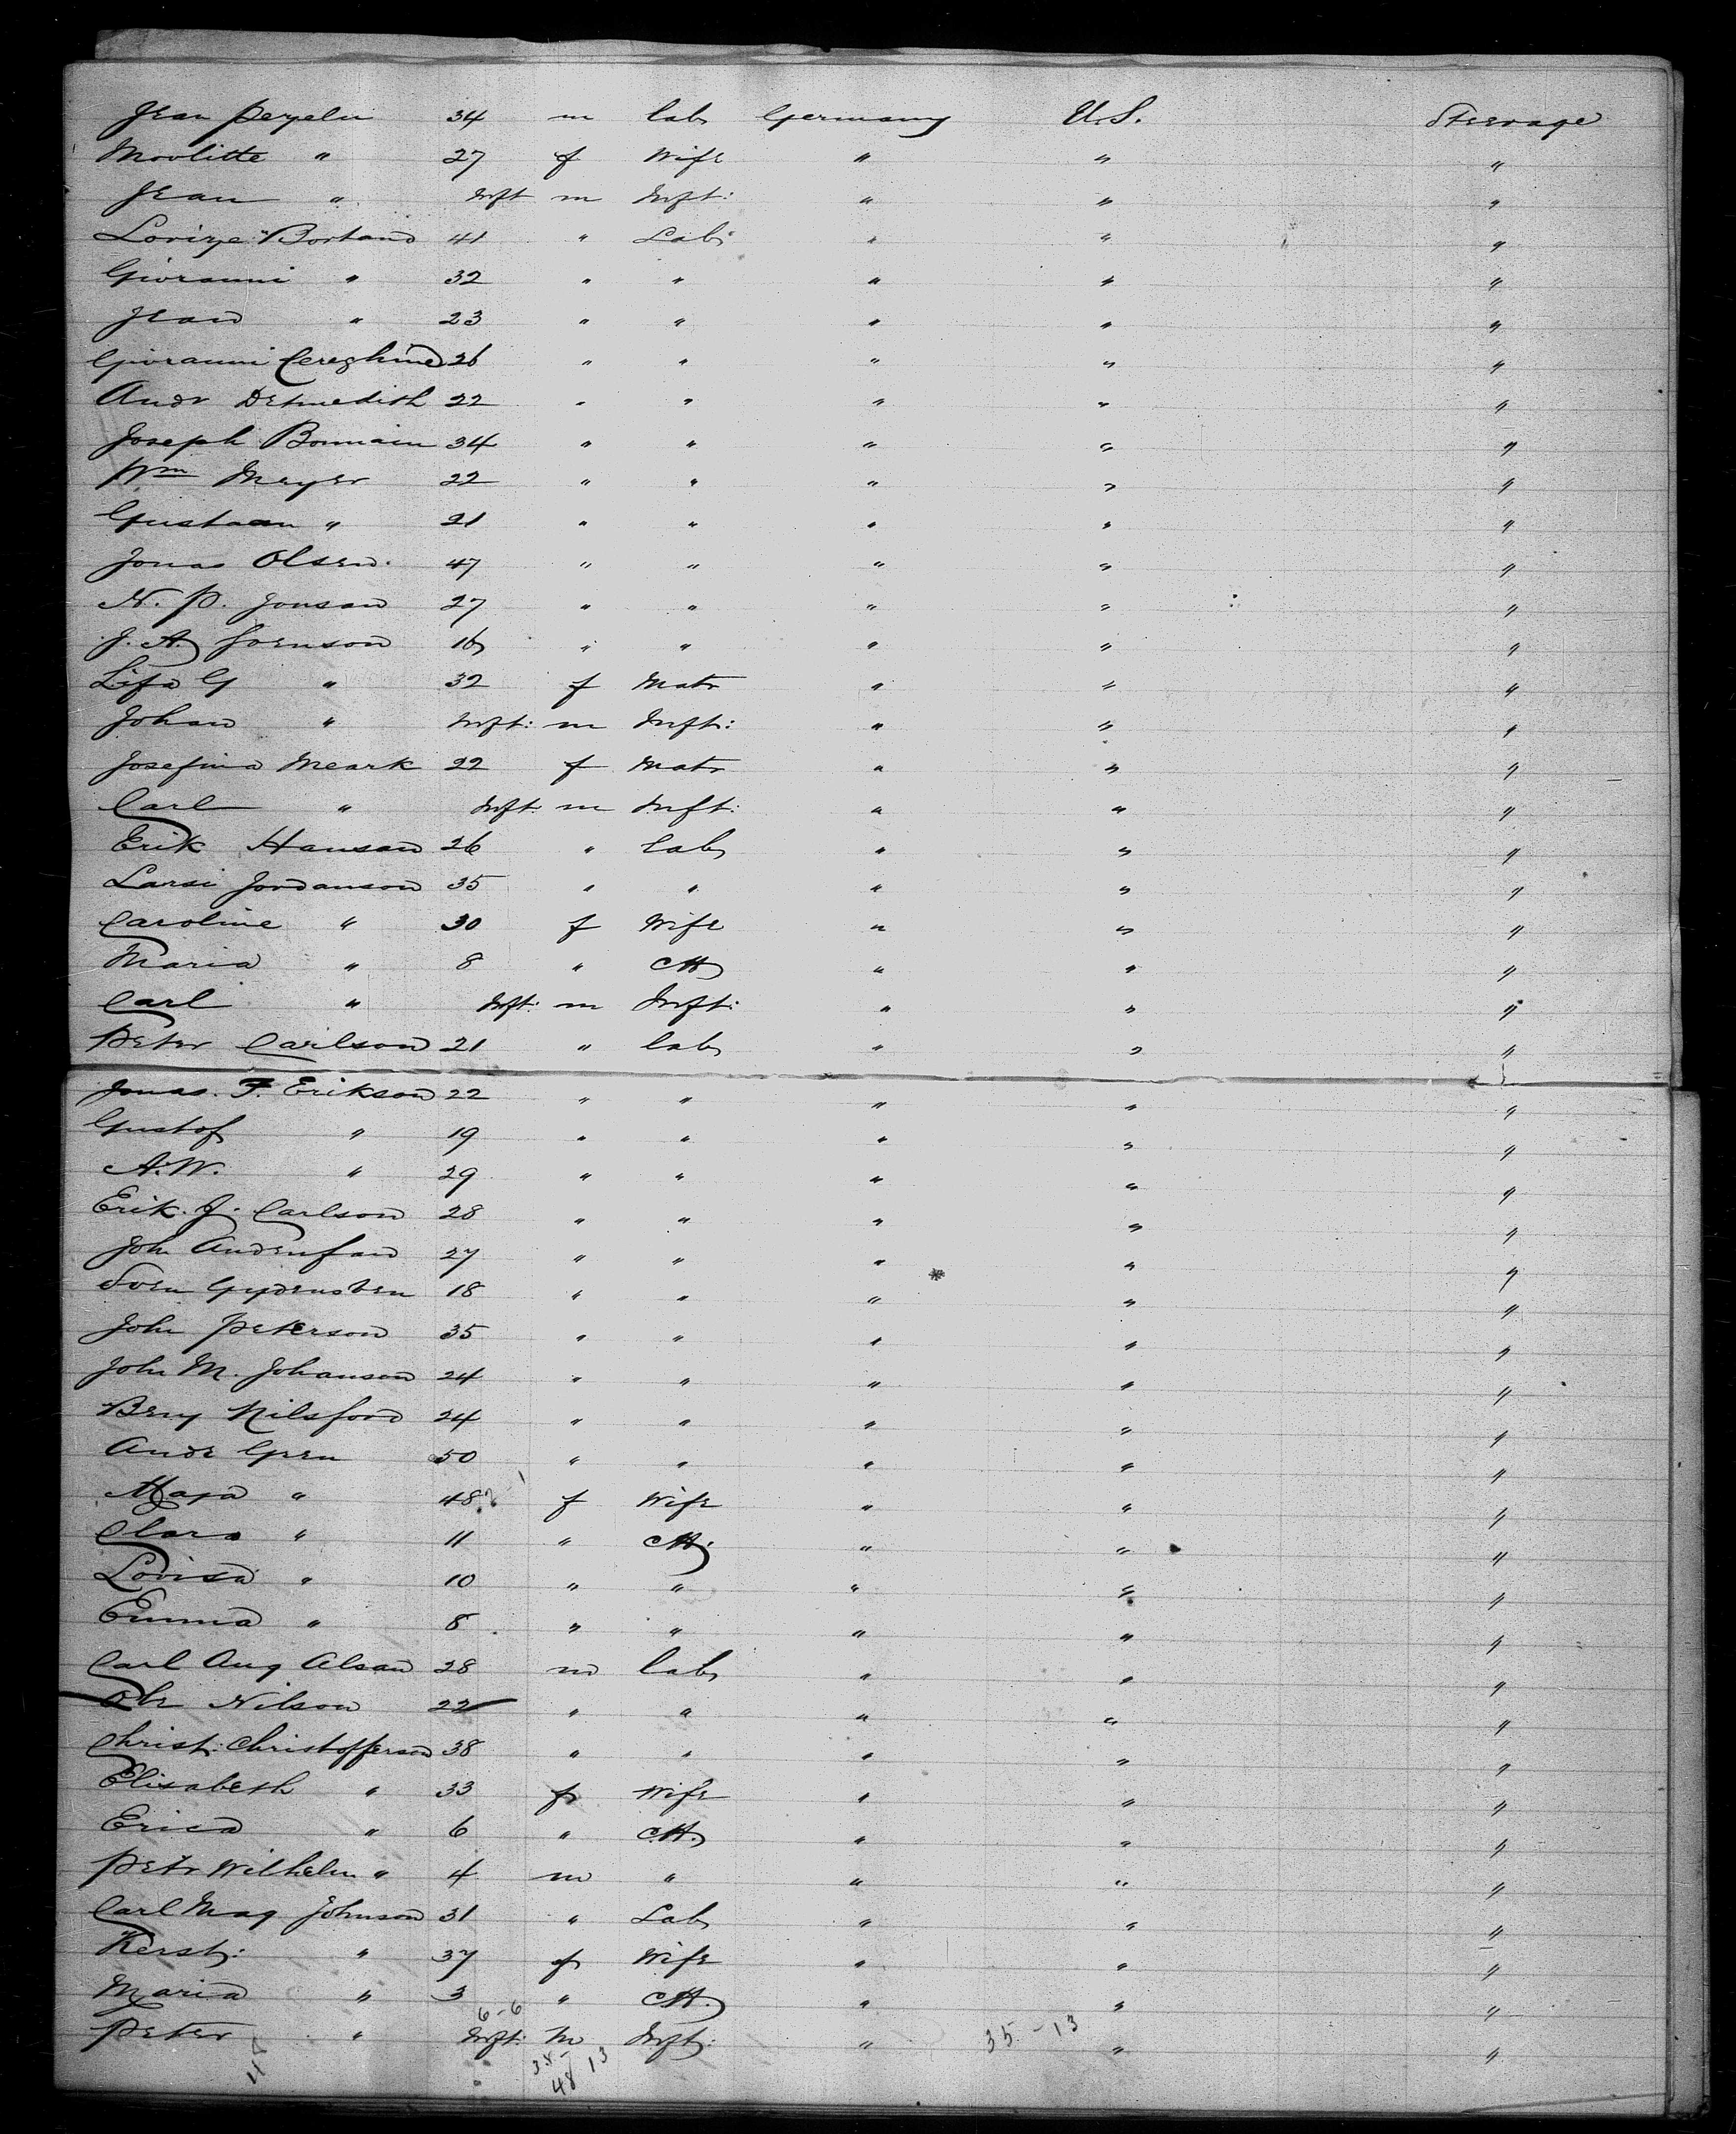 Jean Pezelin 34 m lab Germany U.S. Steerage
Moolitte " 27 f Wife " " "
Jean " Inft m Inft: " " "
Lorize Bortand 41 " Lab " " "
Giovanni " 32 " " " " "
Jean " 23 " " " " "
Giovanni Cereghine 26 " " " " "
Andr Detmedith 22 " " " " "
Joseph Bonmain 34 " " " " "
Wm Meyer 22 " " " " "
Gustaan " 21 " " " " "
Jonas Olsen. 47 " " " " "
N. P. Jonsan 27 " " " " "
J. A. Svenson 16 " " " " "
Lifa G " 32 f Matr " " "
Johan " Inft: m Inft: " " "
Josefina Meark 22 f Matr " " "
Carl " Inft: m Inft: " " "
Erik Hansan 26 " lab " " "
Larsi Jordanson 35 " " " " "
Caroline " 30 f Wife " " "
Maria " 8 " CH " " "
Carl " Inft: m Inft: " " "
Peter Carlson 21 " lab " " "
Jonas. F. Erikson 22 " " " " "
Gustof " 19 " " " " "
A. W. " 29 " " " " "
Erik. J. Carlson 28 " " " " "
Joh Andenfan 27 " " " " "
Sven Gydensven 18 " " " " "
John Peterson 35 " " " " "
John M. Johanson 24 " " " " "
Beng Nilsfoon 24 " " " " "
Ande Gren 50 " " " " "
Maja " 48 f Wife " " "
Clara " 11 " CH. " " "
Lovisa " 10 " " " " "
Emma " 8 " " " " "
Carl Aug Alsan 28 m lab " " "
Ole Nilson 22 " " " " "
Christ: Christofferson 38 " " " " "
Elisabeth " 33 f Wife " " "
Erica " 6 " CH. " " "
Petr Wilhelm " 4 m " " " "
Carl Mag Johnson 31 " Lab " " "
Kerst: " 37 f Wife " " "
Maria " 3 " CH. " " "
6-6
Peter " Inft: m Inft: " 35-13 " "
35-13
48